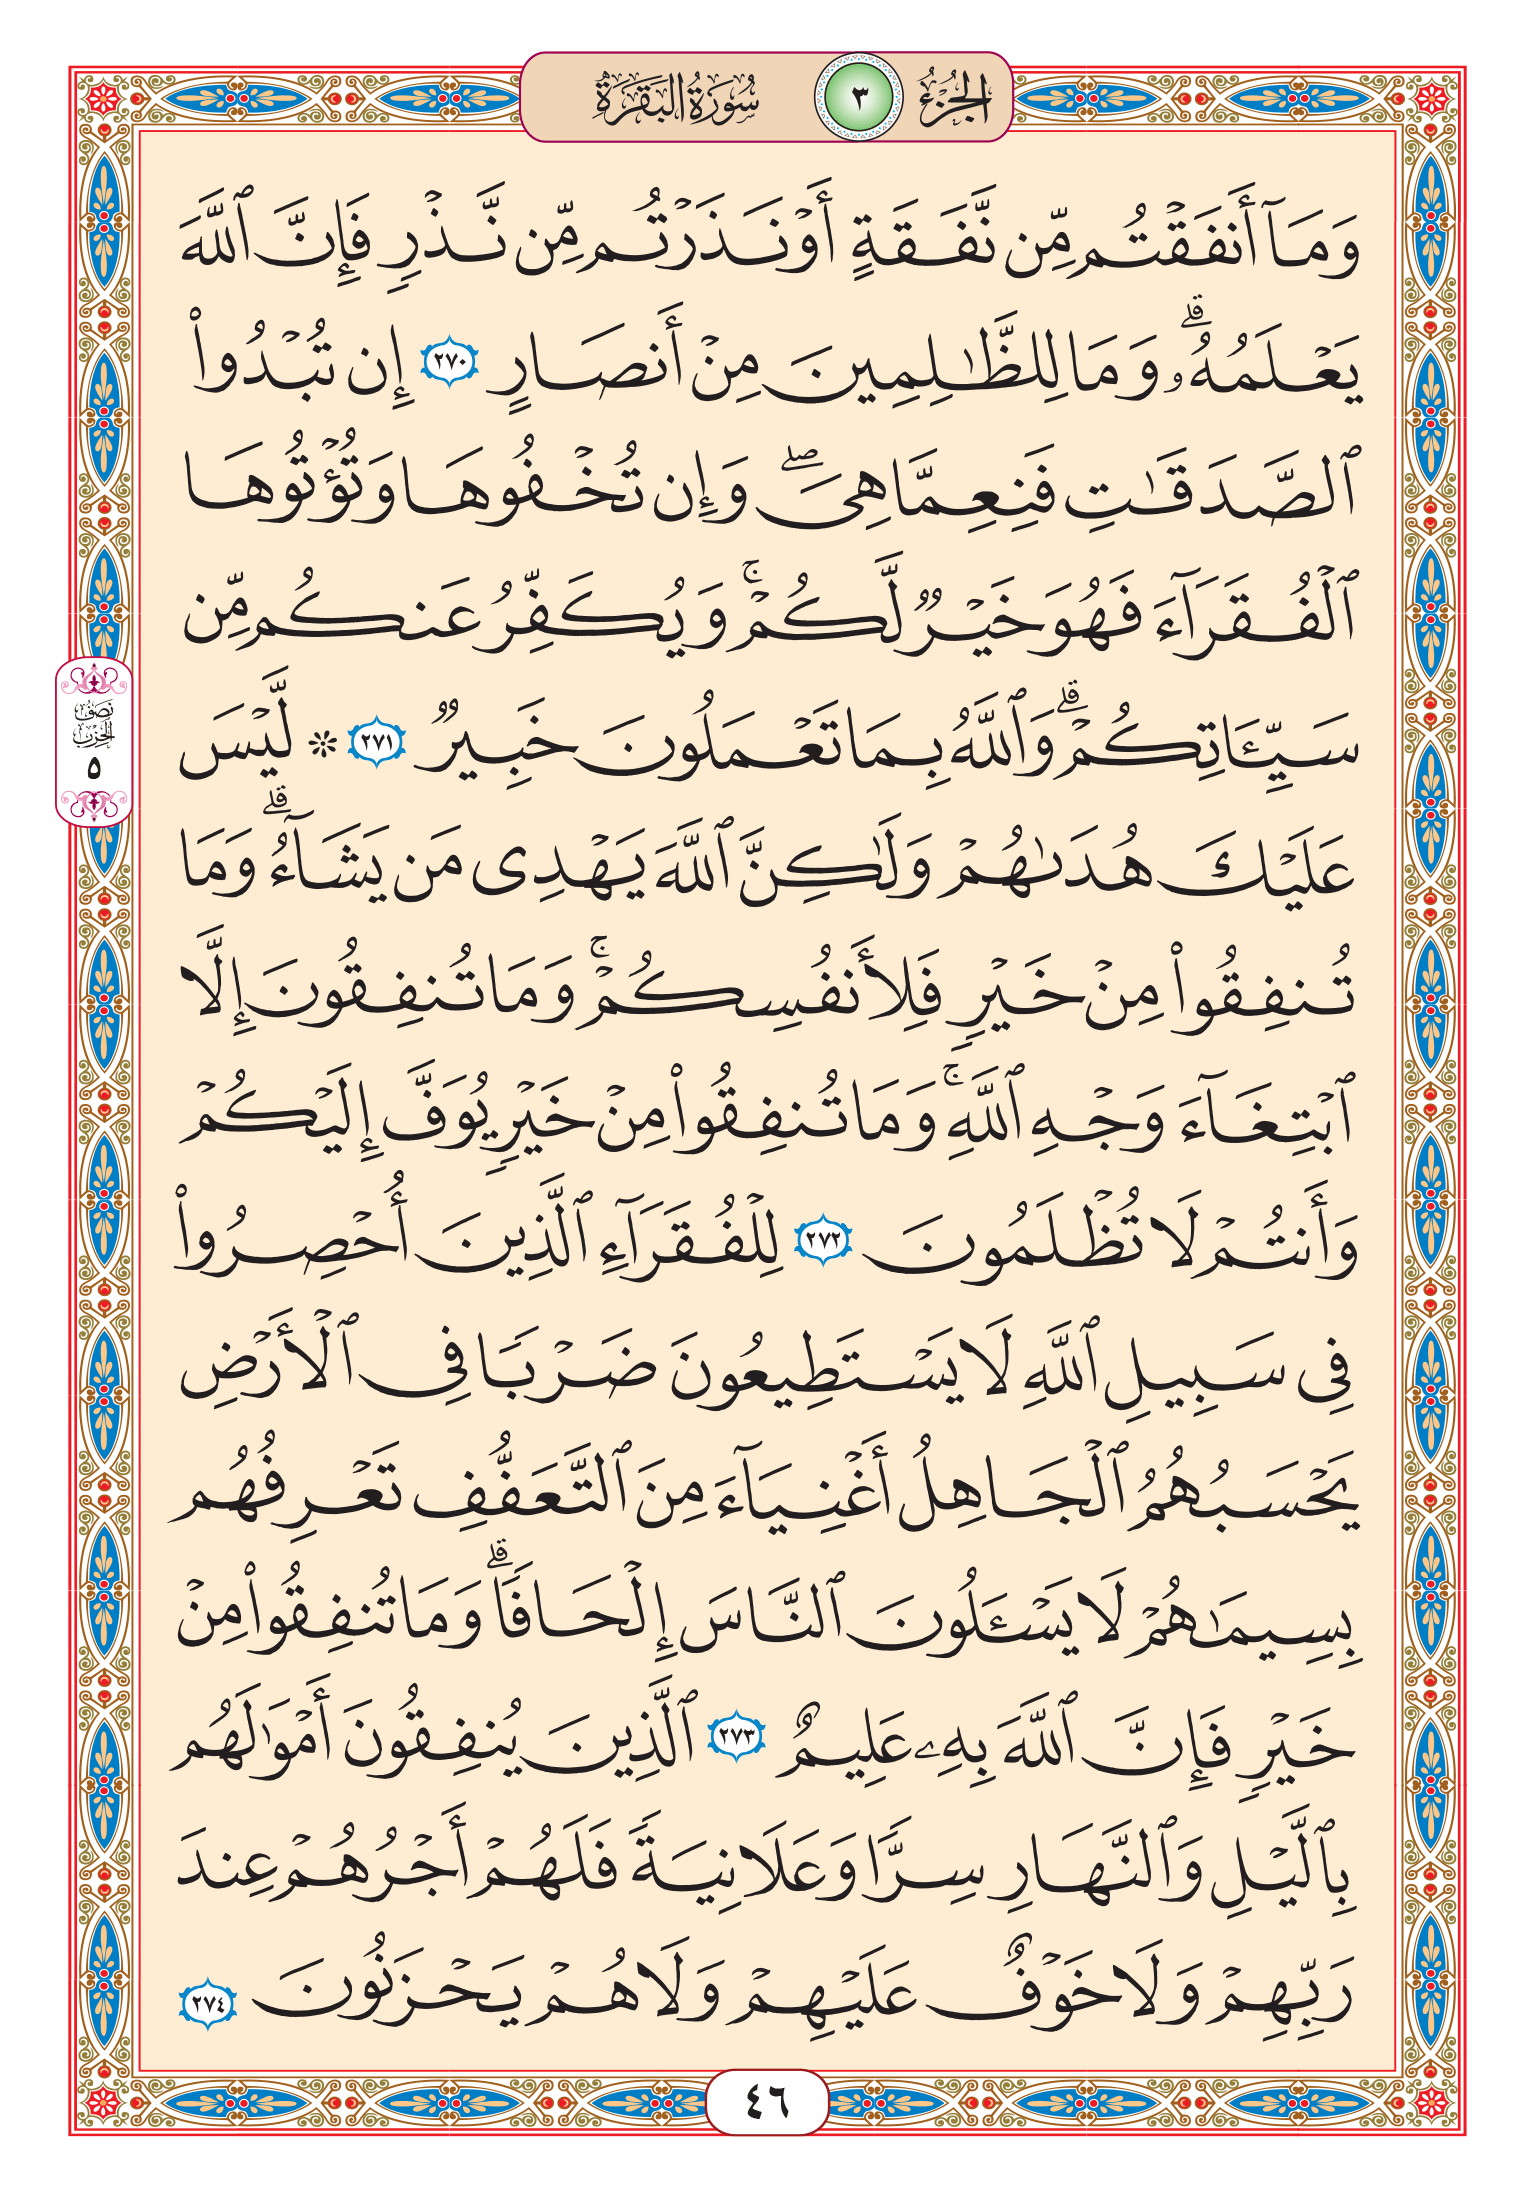 الجزء ٣ سورة البقرة
وَمَآ أَنفَقْتُم مِّن نَّفَقَةٍ أَوْ نَذَرْتُم مِّن نَّذْرٍ فَإِنَّ ٱللَّهَ
يَعْلَمُهُۥۗ وَمَا لِلظَّٰلِمِينَ مِنْ أَنصَارٍ ٢٧٠ إِن تُبْدُوا۟
ٱلصَّدَقَٰتِ فَنِعِمَّا هِىَۖ وَإِن تُخْفُوهَا وَتُؤْتُوهَا
ٱلْفُقَرَآءَ فَهُوَ خَيْرٌ لَّكُمْۚ وَيُكَفِّرُ عَنكُم مِّن
سَيِّـَٔاتِكُمْۗ وَٱللَّهُ بِمَا تَعْمَلُونَ خَبِيرٌ ٢٧١ ۞ لَّيْسَ
نصف الحزب ٥
عَلَيْكَ هُدَىٰهُمْ وَلَٰكِنَّ ٱللَّهَ يَهْدِى مَن يَشَآءُۗ وَمَا
تُنفِقُوا۟ مِنْ خَيْرٍ فَلِأَنفُسِكُمْۚ وَمَا تُنفِقُونَ إِلَّا
ٱبْتِغَآءَ وَجْهِ ٱللَّهِۚ وَمَا تُنفِقُوا۟ مِنْ خَيْرٍ يُوَفَّ إِلَيْكُمْ
وَأَنتُمْ لَا تُظْلَمُونَ ٢٧٢ لِلْفُقَرَآءِ ٱلَّذِينَ أُحْصِرُوا۟
فِى سَبِيلِ ٱللَّهِ لَا يَسْتَطِيعُونَ ضَرْبًا فِى ٱلْأَرْضِ
يَحْسَبُهُمُ ٱلْجَاهِلُ أَغْنِيَآءَ مِنَ ٱلتَّعَفُّفِ تَعْرِفُهُم
بِسِيمَٰهُمْ لَا يَسْـَٔلُونَ ٱلنَّاسَ إِلْحَافًاۗ وَمَا تُنفِقُوا۟ مِنْ
خَيْرٍ فَإِنَّ ٱللَّهَ بِهِۦ عَلِيمٌ ٢٧٣ ٱلَّذِينَ يُنفِقُونَ أَمْوَٰلَهُم
بِٱلَّيْلِ وَٱلنَّهَارِ سِرًّا وَعَلَانِيَةً فَلَهُمْ أَجْرُهُمْ عِندَ
رَبِّهِمْ وَلَا خَوْفٌ عَلَيْهِمْ وَلَا هُمْ يَحْزَنُونَ ٢٧٤
٤٦